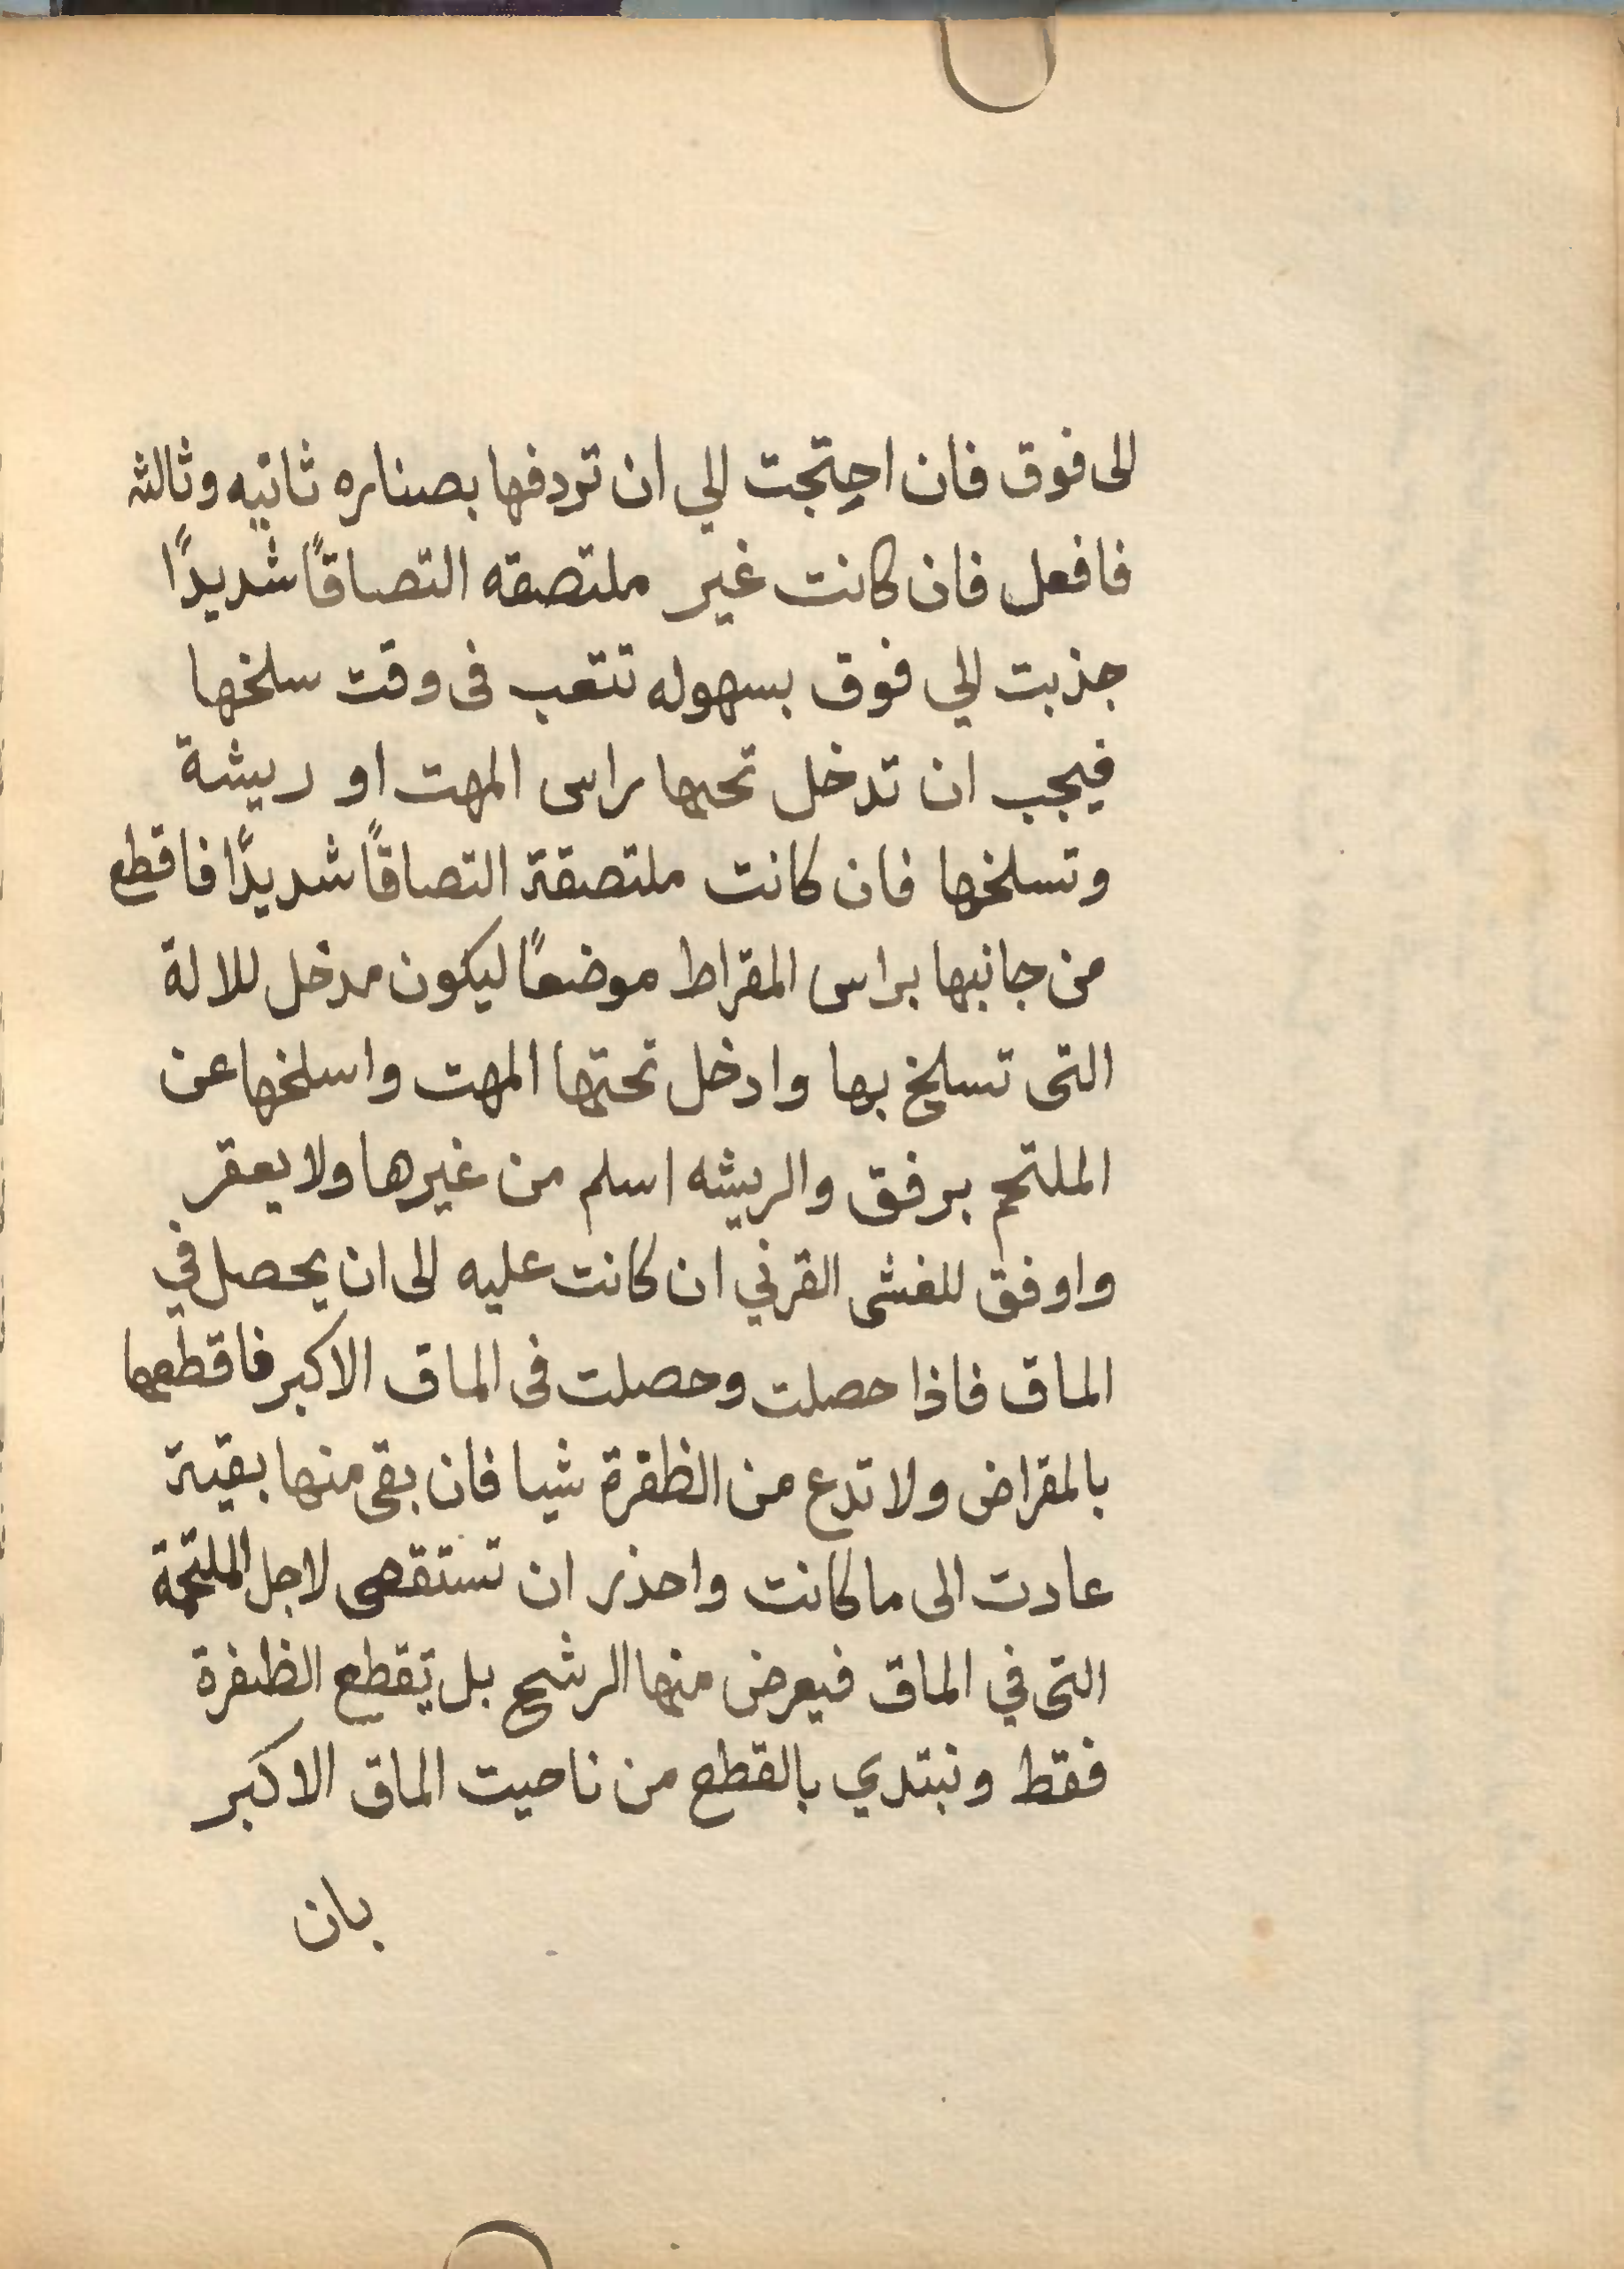 الى فوق فان احتجت الي ان تردفها بصناره ثانيه وثالثه
فافعل فان كانت غير ملتصقه التصاقًا شديدًا
جذبت الي فوق بسهوله تتعب فى وقت سلخها
فيجب ان تدخل تحتها براس المهت او ريشة
وتسلخها فان كانت ملتصقة التصاقًا شديدًا فاقطع
من جانبها براس المقراط موضعًا ليكون مدخل للالة
التى تسلخ بها وادخل تحتها المهت واسلخها عن
الملتحم برفق والريشه اسلم من غيرها ولا يعقر
واوفق للغشى القرني ان كانت عليه الى ان يحصل في
الماق فاذا حصلت وحصلت فى الماق الاكبر فاقطعها
بالمقراض ولا تدع من الظفرة شيا فان بقى منها بقية
عادت الى ما كانت واحذر ان تستقصى لاجل الملتحمة
التى في الماق فيعرض منها الرشح بل تقطع الظفرة
فقط ونبتدي بالقطع من ناحيت الماق الاكبر
بان